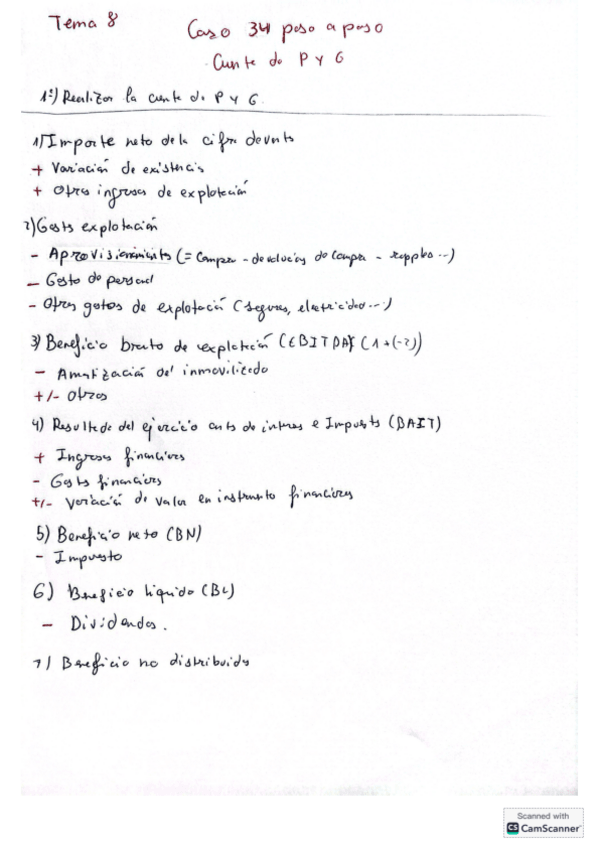 Tema 8
Caso 34 paso a paso
Cunte de P y G
1º) Realizar la cunte de P y G.
1) Importe neto de la cifra de vents
+ Variación de existencis
+ Otros ingresos de explotación
2) Gasts explotación
- Aprovisionamients (= compra - devolucins de compra - rapples...)
- Gasto de personal
- Otros gatos de explotació (seguros, electricidad...)
3) Beneficio bruto de explotación (EBITDA) (1+(-2))
- Amortización del inmovilizado
+/- Otros
4) Resultado del ejercicio ants de intres e Impuests (BAIT)
+ Ingresos financieros
- Gasts financieros
+/- Variació de valor en instrumento financieros
5) Beneficio neto (BN)
- Impuesto
6) Beneficio líquido (BL)
- Dividendos.
7) Beneficio no distribuido
Scanned with
CS CamScanner